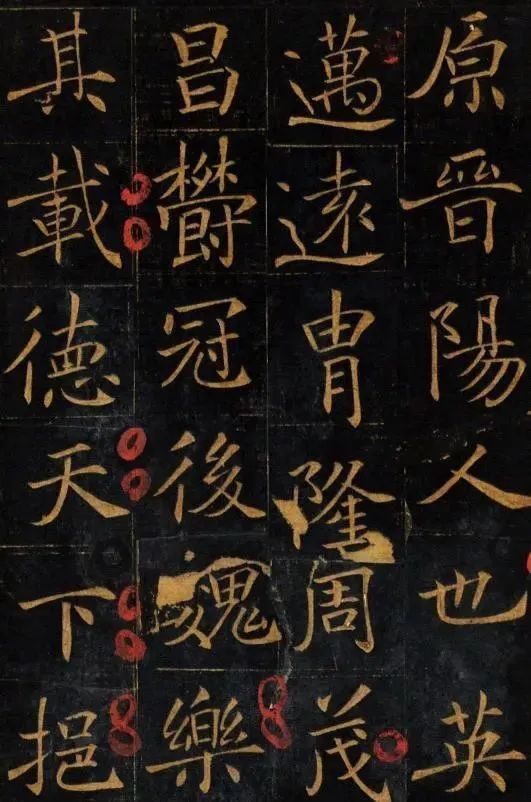 原晉陽人也英
邁遠胄隆周茂
昌欝冠後魏樂
其載德天下挹